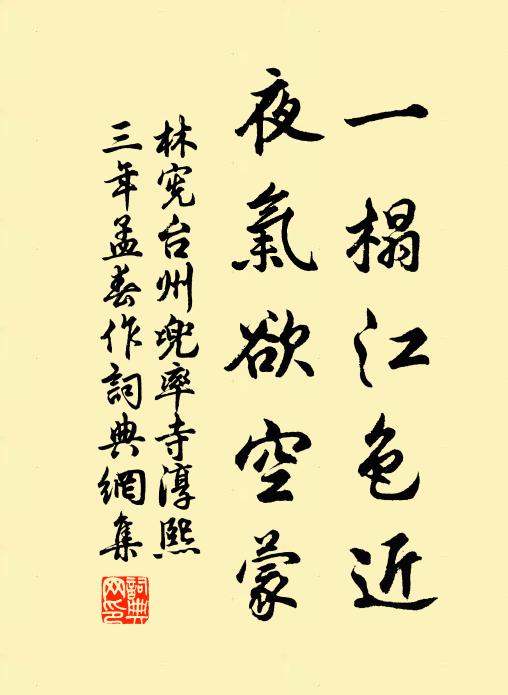 一榻江色近
夜氣欲空蒙
林宪台州兜率寺淳熙
三年孟春作詞典網集
詞典網印